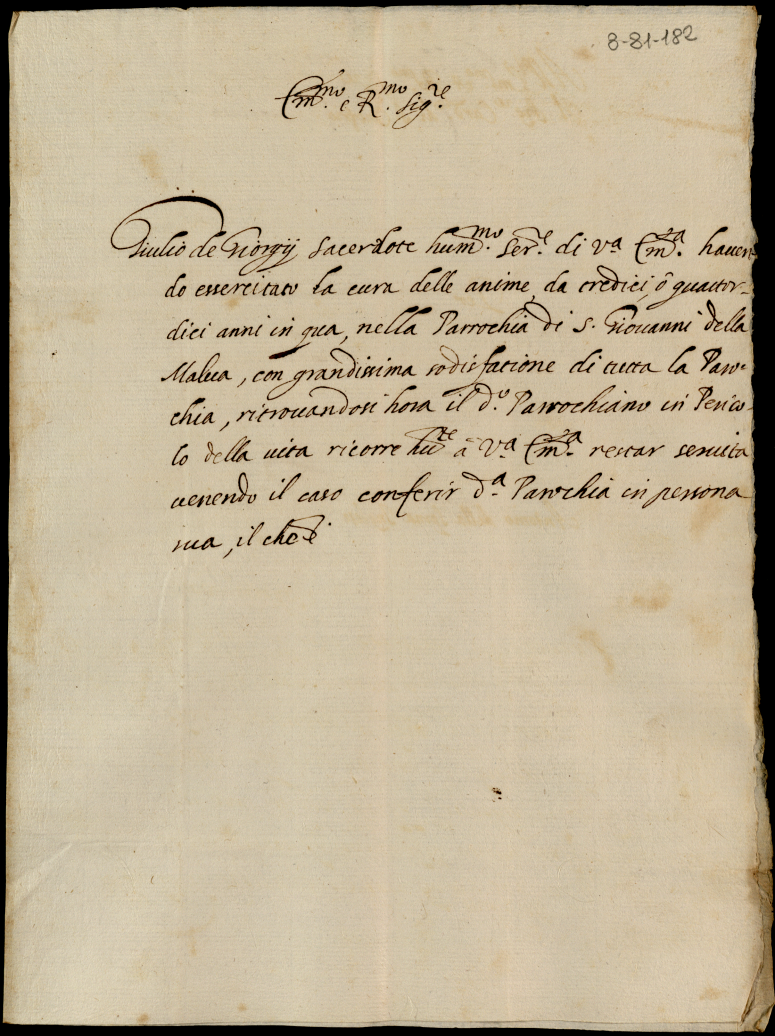 8-81-182
Em.mo e R.mo Sig.re
Giulio de Giorgij Sacerdote hum.mo ser.e di V.a Em.za haven
do essercitato la cura delle anime, da tredici, ò quattor-
dici anni in qua, nella Parrochia di S. Giovanni della
Malva, con grandissima sodisfatione di tutta la Paro-
chia, ritrovandosi hora il d.o Parrochiano in Perico-
lo della vita ricorre hu.te à V.a Em.za restar servita
venendo il caso conferir d.a Parochia in persona
sua, il che